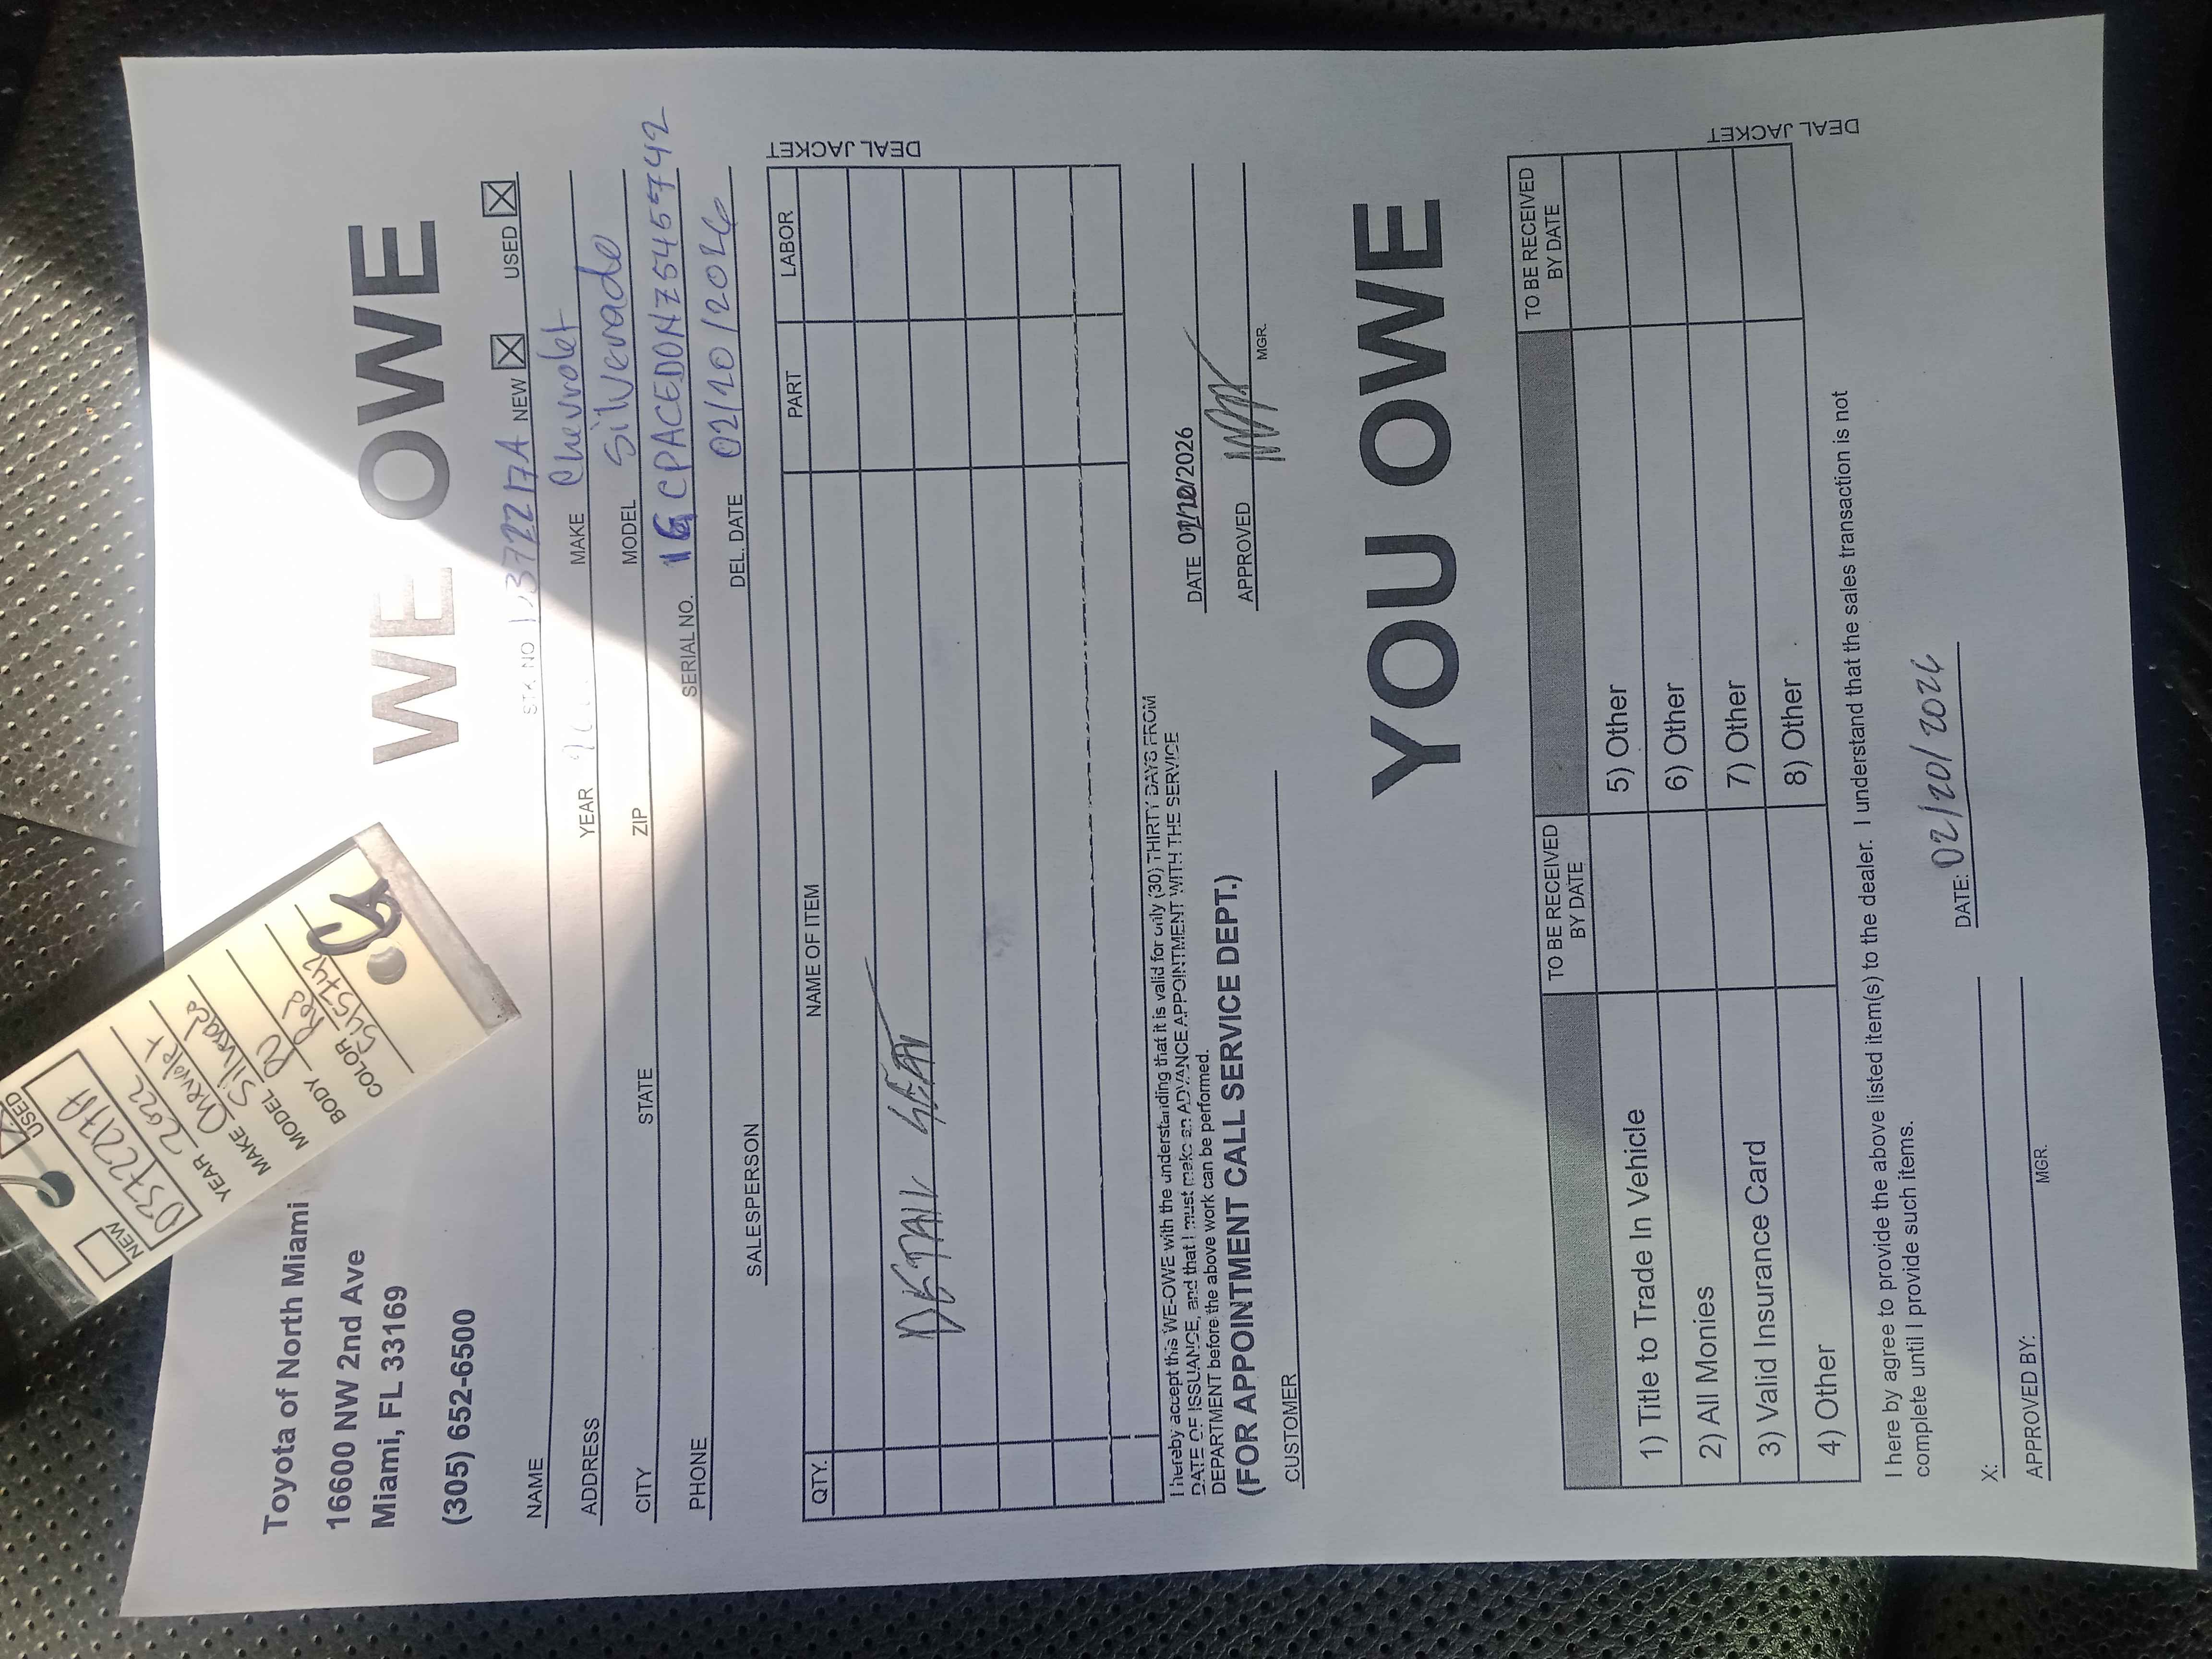 Toyota of North Miami
16600 NW 2nd Ave
Miami, FL 33169
(305) 652-6500
WE OWE
NEW USED
D372217A
YEAR 2022
MAKE Chevrolet
MODEL Silverado
BODY PU
COLOR Red
545742
NAME STK NO D372217A NEW USED
ADDRESS YEAR MAKE Chevrolet
CITY STATE ZIP MODEL Silverado
PHONE SERIAL NO. 1GCPACED0NZ545742
SALESPERSON DEL. DATE 02/20/2026
QTY. NAME OF ITEM PART LABOR
DETAIL
DEAL JACKET
I hereby accept this WE-OWE with the understanding that it is valid for only (30) THIRTY DAYS FROM
DATE OF ISSUANCE, and that I must make an ADVANCE APPOINTMENT WITH THE SERVICE
DEPARTMENT before the above work can be performed.
(FOR APPOINTMENT CALL SERVICE DEPT.)
DATE 02/20/2026
CUSTOMER APPROVED
MGR.
YOU OWE
TO BE RECEIVED BY DATE TO BE RECEIVED BY DATE
1) Title to Trade In Vehicle 5) Other
2) All Monies 6) Other
3) Valid Insurance Card 7) Other
4) Other 8) Other
DEAL JACKET
I here by agree to provide the above listed item(s) to the dealer. I understand that the sales transaction is not
complete until I provide such items.
X: DATE: 02/20/2026
APPROVED BY:
MGR.